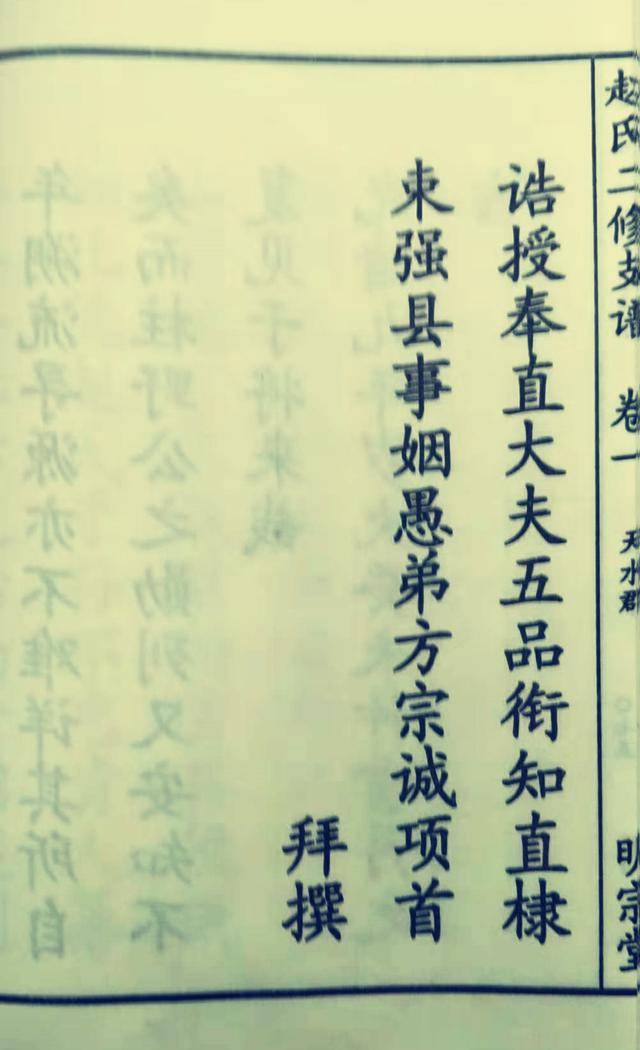 赵氏二修支谱 卷一 天水群 明宗堂
诰授奉直大夫五品衔知直棣
束强县事姻愚弟方宗诚项首
拜撰